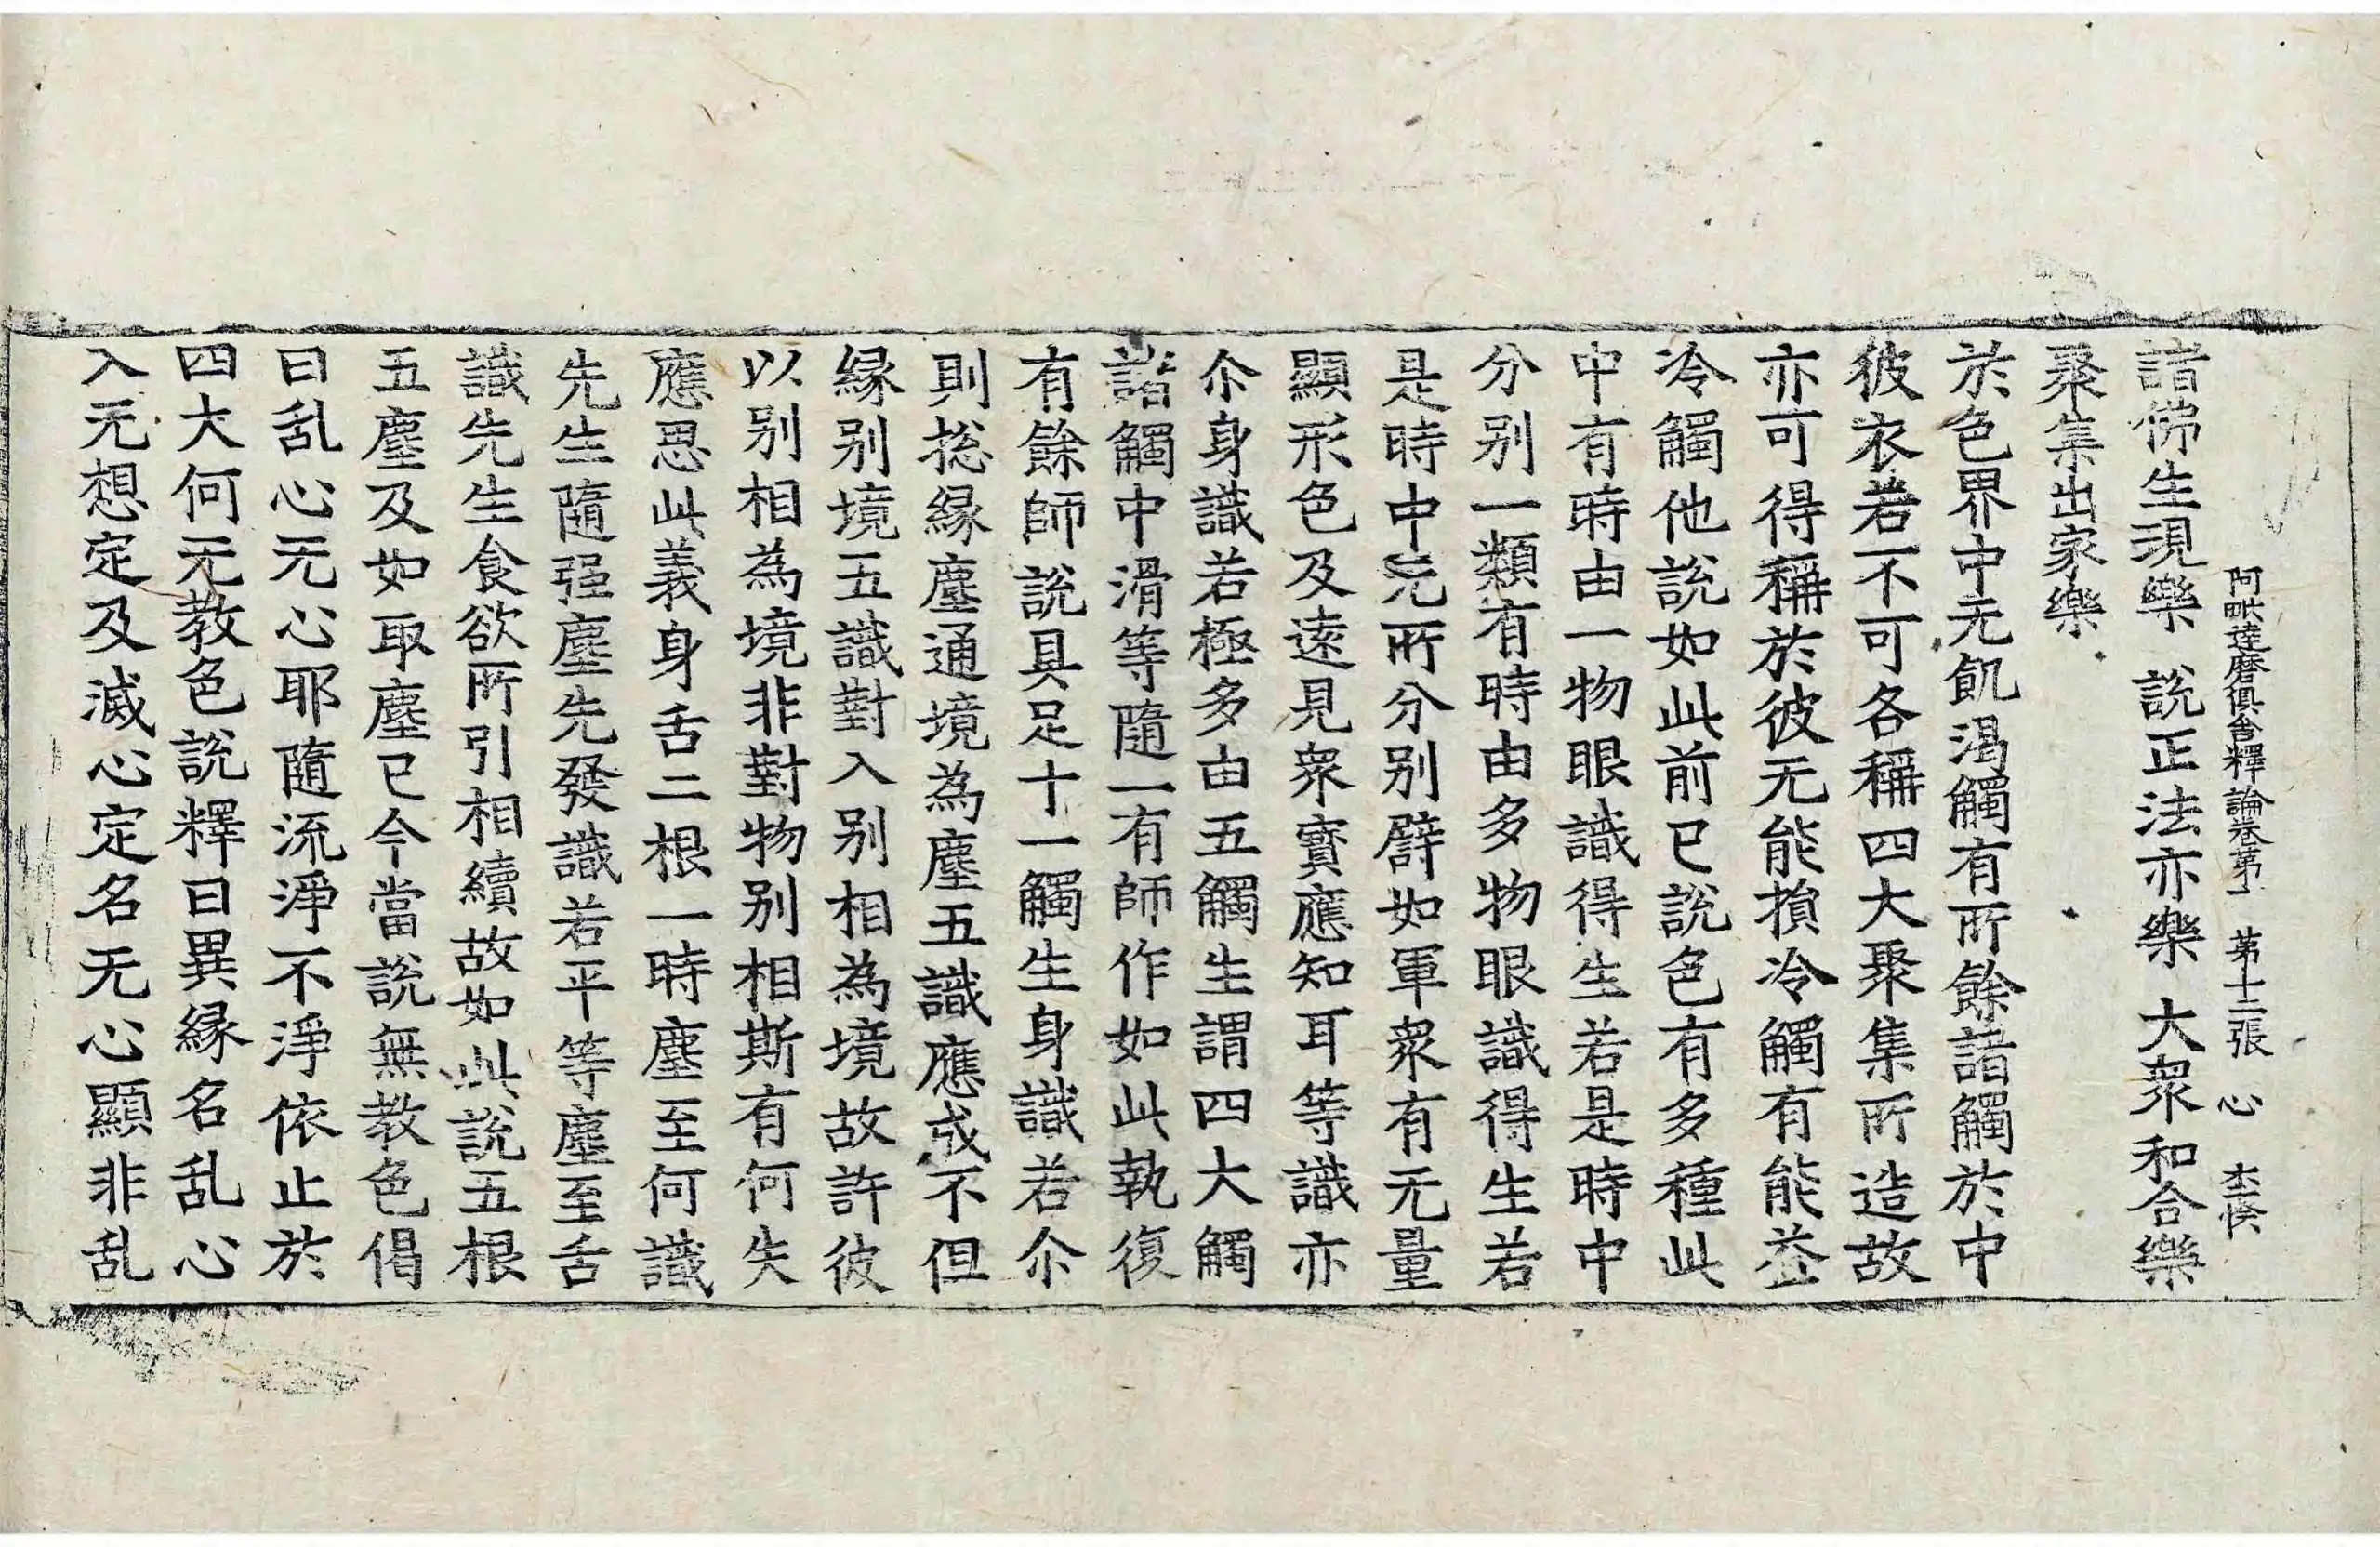 阿毗達磨俱舍釋論卷第一 第十二張 心 李侯
諸佛生現樂 說正法亦樂 大衆和合樂
聚集出家樂
於色界中无飢渴觸有所餘諸觸於中
彼衣若不可各稱四大聚集所造故
亦可得稱於彼无能損冷觸有能益
冷觸他說如此前已說色有多種此
中有時由一物眼識得生若是時中
分别一類有時由多物眼識得生若
是時中无所分别譬如軍衆有无量
顯形色及遠見衆寳應知耳等識亦
尒身識若極多由五觸生謂四大觸
諸觸中滑等隨一有師作如此執復
有餘師說具足十一觸生身識若尒
則捴緣塵通境為塵五識應成不但
緣别境五識對入别相為境故許彼
以别相為境非對物别相斯有何失
應思此義身舌二根一時塵至何識
先生隨强塵先發識若平等塵至舌
識先生食欲所引相續故如此說五根
五塵及如取塵已今當說無教色偈
曰乱心无心耶隨流淨不淨依止於
四大何无教色說釋曰異緣名乱心
入无想定及滅心定名无心顯非乱